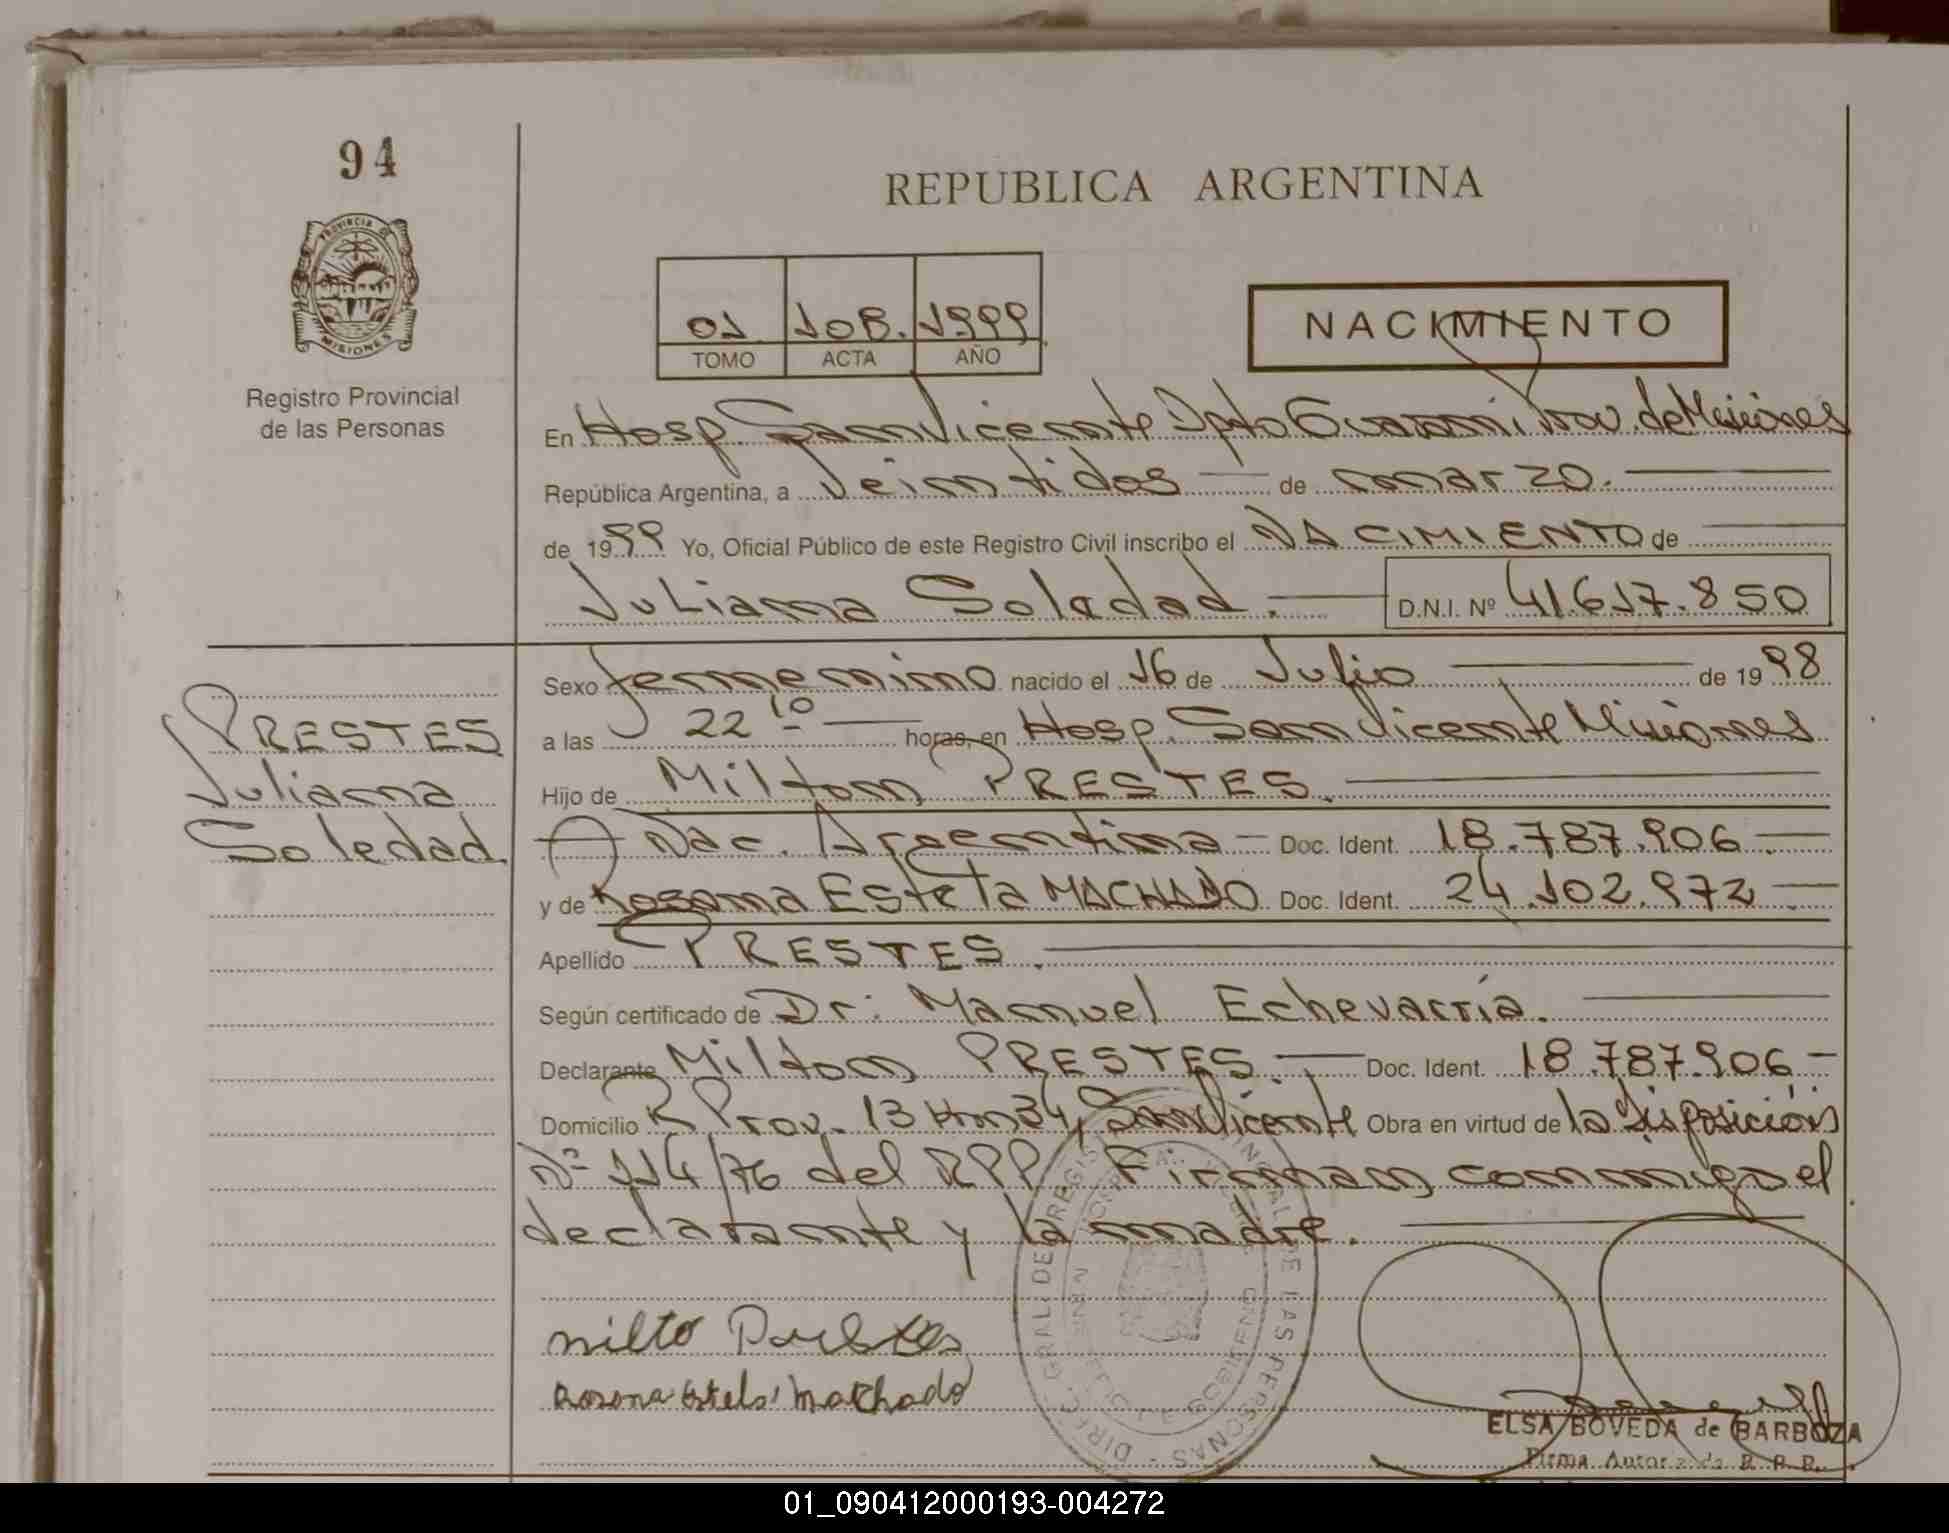 94
REPUBLICA ARGENTINA
PROVINCIA DE
MISIONES
Registro Provincial
de las Personas
01 108. 1999
TOMO ACTA AÑO
NACIMIENTO
En Hosp. San Vicente Dpto Guaraní Prov. de Misiones
República Argentina, a Veintidos de marzo.
de 1999 Yo, Oficial Público de este Registro Civil inscribo el NACIMIENTO de
Juliana Soledad. D.N.I. Nº 41.617.850
PRESTES
Juliana
Soledad.
Sexo femenino nacido el 16 de Julio de 1998
a las 22 10 horas, en Hosp. San Vicente Misiones
Hijo de Milton PRESTES.
Nac. Argentina Doc. Ident. 18.787.906
y de Rosana Estela MACHADO Doc. Ident. 24.102.972
Apellido PRESTES.
Según certificado de Dr: Manuel Echevarría.
Declarante Milton PRESTES. Doc. Ident. 18.787.906
Domicilio R Prov. 13 Km 34, San Vicente Obra en virtud de la disposición
Nº 114/76 del RPP. Firman conmigo el
declarante y la madre.
milto Prestes
Rosana Estela Machado
ELSA BOVEDA de BARBOZA
Firma Autorizada R. P. P.
01_090412000193-004272